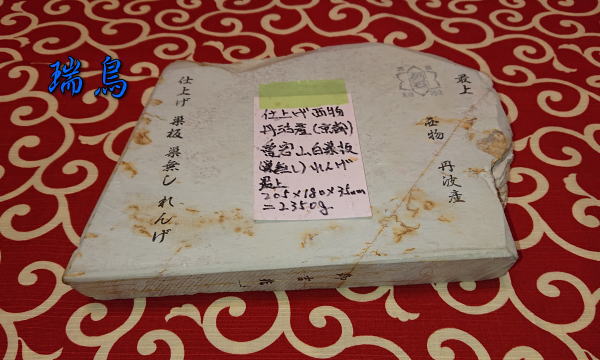 瑞鳥
最上
西物
丹波産
仕上げ 巣板 巣無し れんげ
仕上げ西物
丹波産(京都)
白巣板
(巣無し)れんげ
最上
205×180×35mm
=2350g.